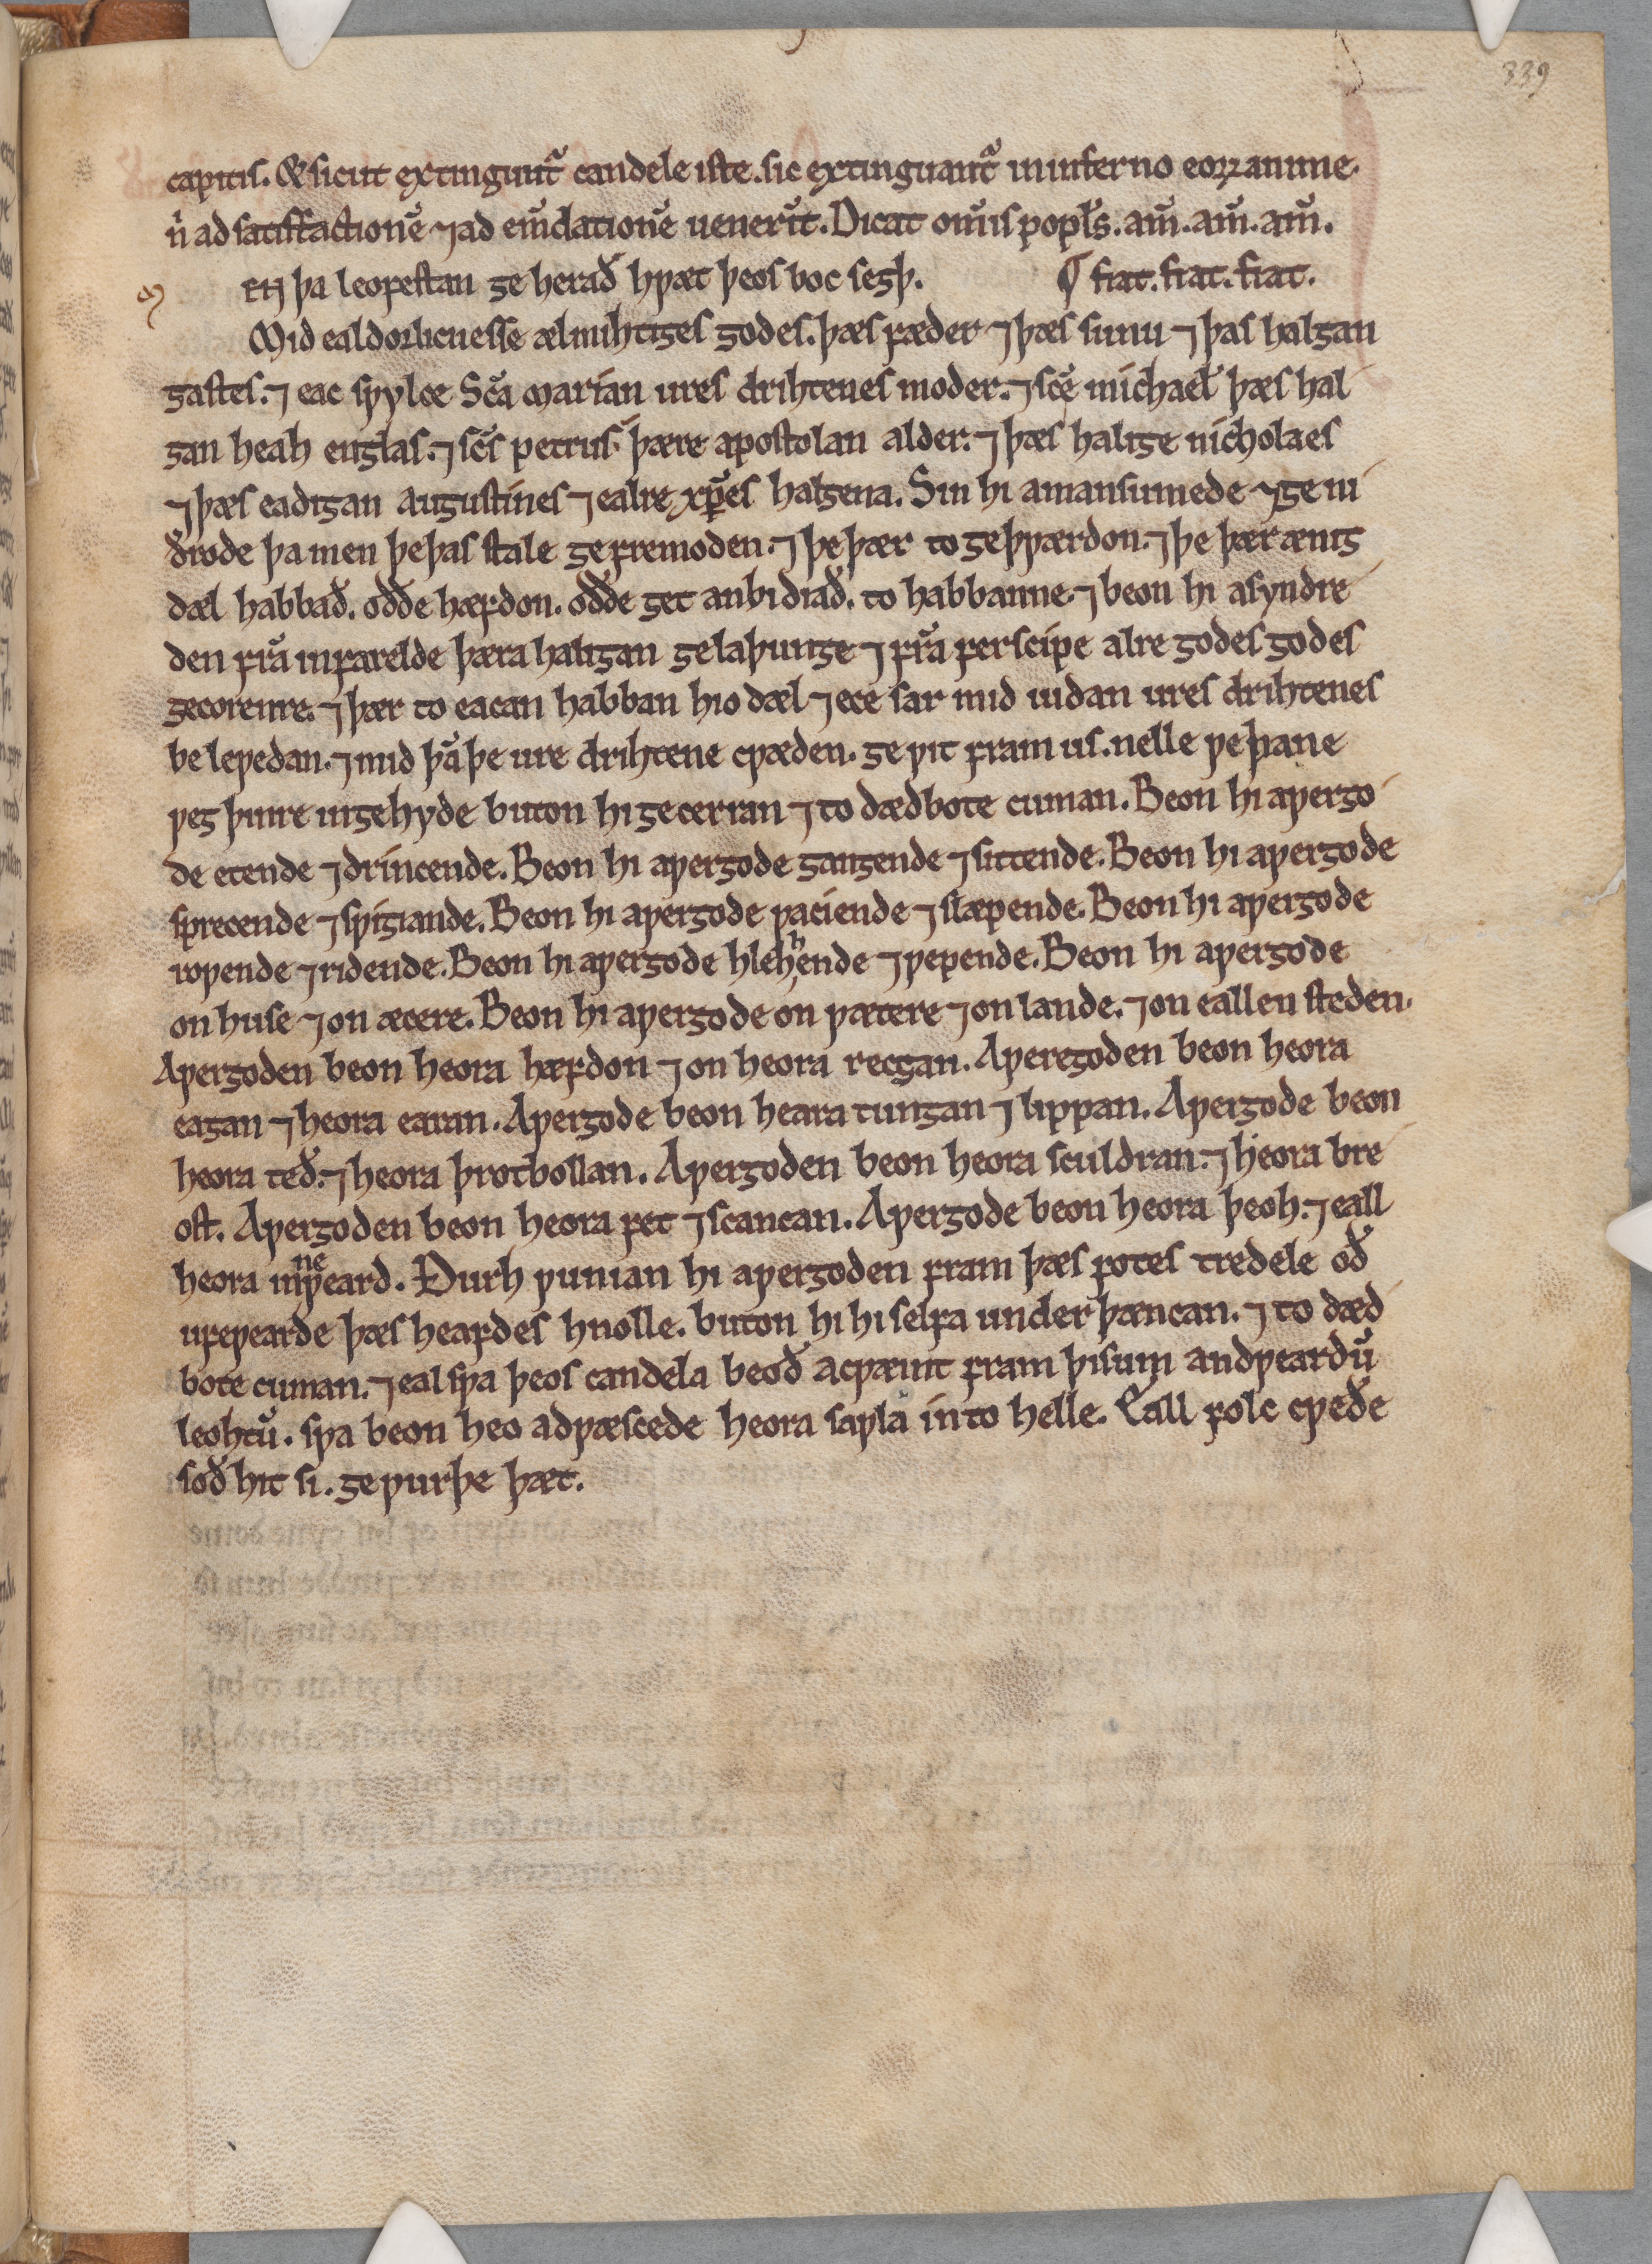 339
capitis. & sicut extinguunt᷑ candele iste. sic extinguant᷑ in inferno eoꝝ anime.
n̄ ad satisfactionē ⁊ ad em̄dationē uenerūt. Dicat om̄is popl̄s. am̄. am̄. am̄.
EN þa leoꝼestan ge herað hƿæt þeos boc segþ. ¶ fiat. fiat. fiat.
Mid ealdorlicnesse ælmihtiges godes. þæs ꝼæder ⁊ þæs sunu ⁊ þas halgan
gastes. ⁊ eac sƿylce Sc̄a marian ures drihtenes moder. ⁊ sc̄e michael þæs hal
gan heah englas. ⁊ sc̄s petrus. þære apostolan alder. ⁊ þæs halige nicholaes
⁊ þæs eadigan augustines ⁊ ealre xp̄es halgena. Sin hi amansumede ⁊ ge ni
ðrode þa men þe þas stale geꝼremoden. ⁊ þe þær to geþƿærdon. ⁊ þe þær ænig
dæl habbað. oððe hæꝼdon. oððe get anbidiað. to habbanne. ⁊ beon hi asyndre
den ꝼrā inꝼærelde þæra haligan gelaþunge ⁊ ꝼrā ꝼerscipe alre godes godes
gecorenre. ⁊ þær to eacan habban hio dæl ⁊ ece sar mid iudan ures drihtenes
be leƿedan. ⁊ mid þā þe ure drihtene cƿæden. ge ƿit ꝼram us. nelle ƿe þane
ƿeg þinre ingehyde buton hi gecerran ⁊ to dædbote cuman. Beon hi aƿergo
de etende ⁊ drincende. Beon hi aƿergode gangende ⁊ sittende. Beon hi aƿergode
sprecende ⁊ sƿigiande. Beon hi aƿergode ƿaciende ⁊ slæpende. Beon hi aƿergode
roƿende ⁊ ridende. Beon hi aƿergode hlehhende ⁊ ƿepende. Beon hi aƿergode
on huse ⁊ on æcere. Beon hi aƿergode on ƿætere ⁊ on lande. ⁊ on eallen steden.
Aƿergoden beon heora hæꝼdon ⁊ on heora recgan. Aƿeregoden beon heora
eagan ⁊ heora earan. Aƿergode beon heara tungan ⁊ lippan. Aƿergode beon
heora teð. ⁊ heora þrotbollan. Aƿergoden beon heora sculdran. ⁊ heora bre
ost. Aƿergoden beon heora ꝼet ⁊ scancan. Aƿergode beon heora þeoh. ⁊ eall
heora inneƿeard. Ðurh ƿunian hi aƿergoden ꝼram þæs ꝼotes tredele oð
uꝼeƿearde þæs heaꝼdes hnolle. buton hi hi selꝼa under þæncan. ⁊ to dæd
bote cuman. ⁊ eal sƿa þeos candela beoð acƿænit ꝼram þisum andƿeardū
leohtū. sƿa beon heo adƿæscede heora saƿla into helle. Eall ꝼolc cƿeðe
soð hit si. geƿurþe þæt.